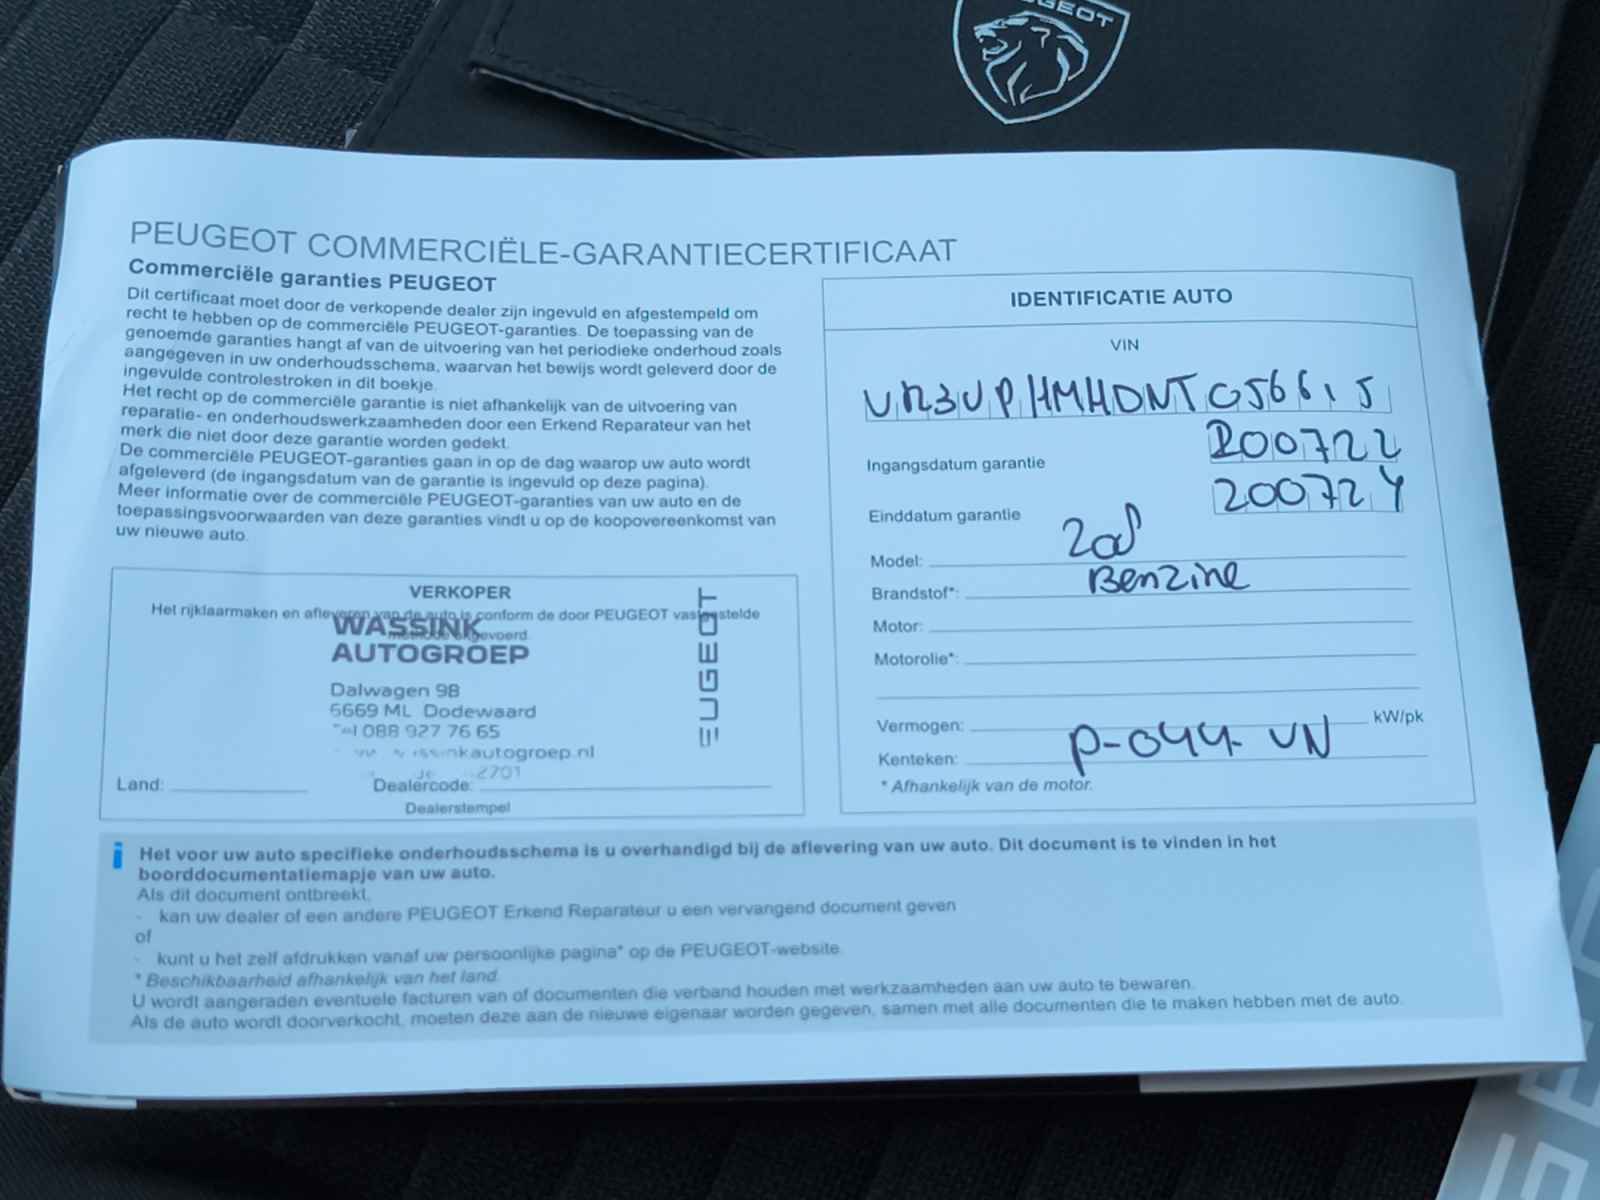 PEUGEOT
PEUGEOT COMMERCIËLE-GARANTIECERTIFICAAT
Commerciële garanties PEUGEOT
Dit certificaat moet door de verkopende dealer zijn ingevuld en afgestempeld om
recht te hebben op de commerciële PEUGEOT-garanties. De toepassing van de
genoemde garanties hangt af van de uitvoering van het periodieke onderhoud zoals
aangegeven in uw onderhoudsschema, waarvan het bewijs wordt geleverd door de
ingevulde controlestroken in dit boekje.
Het recht op de commerciële garantie is niet afhankelijk van de uitvoering van
reparatie- en onderhoudswerkzaamheden door een Erkend Reparateur van het
merk die niet door deze garantie worden gedekt.
De commerciële PEUGEOT-garanties gaan in op de dag waarop uw auto wordt
afgeleverd (de ingangsdatum van de garantie is ingevuld op deze pagina).
Meer informatie over de commerciële PEUGEOT-garanties van uw auto en de
toepassingsvoorwaarden van deze garanties vindt u op de koopovereenkomst van
uw nieuwe auto.
VERKOPER
Het rijklaarmaken en afleveren van de auto is conform de door PEUGEOT vastgestelde
WASSINK
AUTOGROEP
Dalwagen 98
6669 ML Dodewaard
Tel 088 927 76 65
2701
EUGEOT
Land:
Dealercode:
Dealerstempel
IDENTIFICATIE AUTO
VIN
VR3UPHMHDNT056615
Ingangsdatum garantie 200722
Einddatum garantie 200724
Model: 208
Brandstof*: Benzine
Motor:
Motorolie*:
Vermogen: kW/pk
Kenteken: P-044-VN
* Afhankelijk van de motor.
Het voor uw auto specifieke onderhoudsschema is u overhandigd bij de aflevering van uw auto. Dit document is te vinden in het
boorddocumentatiemapje van uw auto.
Als dit document ontbreekt,
- kan uw dealer of een andere PEUGEOT Erkend Reparateur u een vervangend document geven
of
- kunt u het zelf afdrukken vanaf uw persoonlijke pagina* op de PEUGEOT-website.
* Beschikbaarheid afhankelijk van het land.
U wordt aangeraden eventuele facturen van of documenten die verband houden met werkzaamheden aan uw auto te bewaren.
Als de auto wordt doorverkocht, moeten deze aan de nieuwe eigenaar worden gegeven, samen met alle documenten die te maken hebben met de auto.